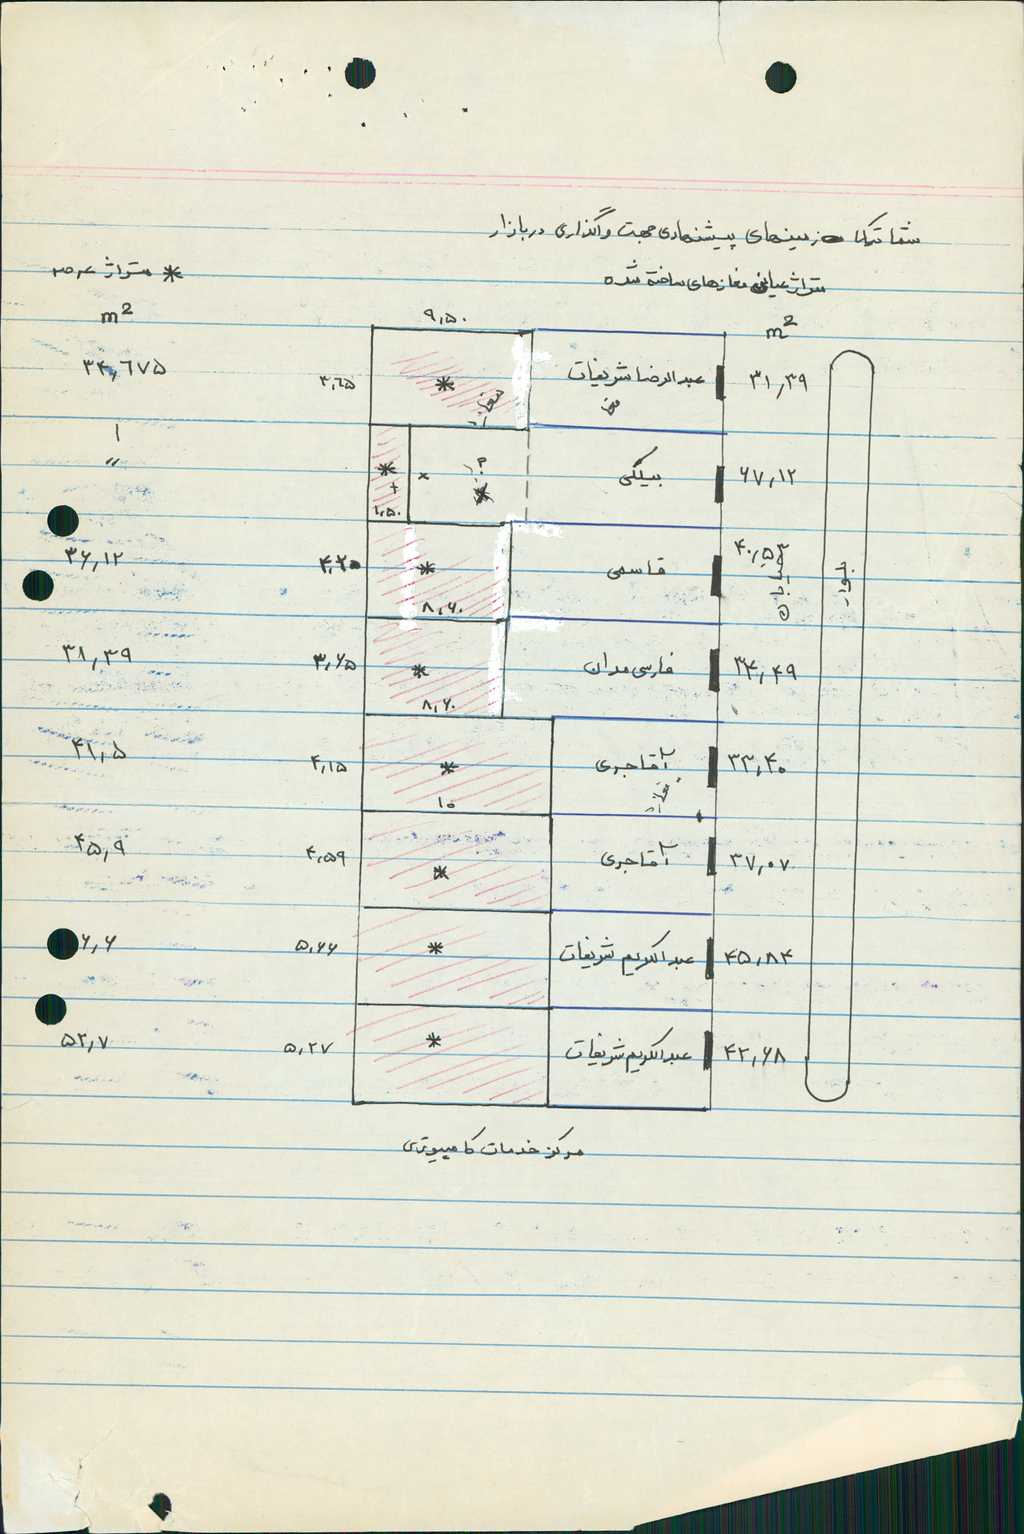 شماتیک زمینهای پیشنهادی جهت واگذاری در بازار
متراژ عیانی مغازهای ساخته شده
* متراژ عرصه
m²
m²
۹,۵۰
۳۱,۳۹
عبدالرضا شریفات
*
۳,۶۵
۳۴,۶۷۵
۶۷,۱۲
بیلکی
؟
*
×
*
+
۱,۵۰
"
۴۰,۵۳
قاسمی
*
۸,۶۰
۴,۲۵
۳۶,۱۲
خیابان
بلوار
۳۴,۴۹
فارسی مدان
*
۸,۶۰
۳,۶۵
۳۸,۳۹
۳۳,۴۰
آقاجری
*
۱۰
۴,۱۵
۴۱,۵
۳۷,۰۷
آقاجری
*
۴,۵۹
۴۵,۹
۴۵,۸۴
عبدالکریم شریفات
*
۵,۶۶
۶,۶
۴۲,۶۸
عبدالکریم شریفات
*
۵,۲۷
۵۲,۷
مرکز خدمات کامپیوتری